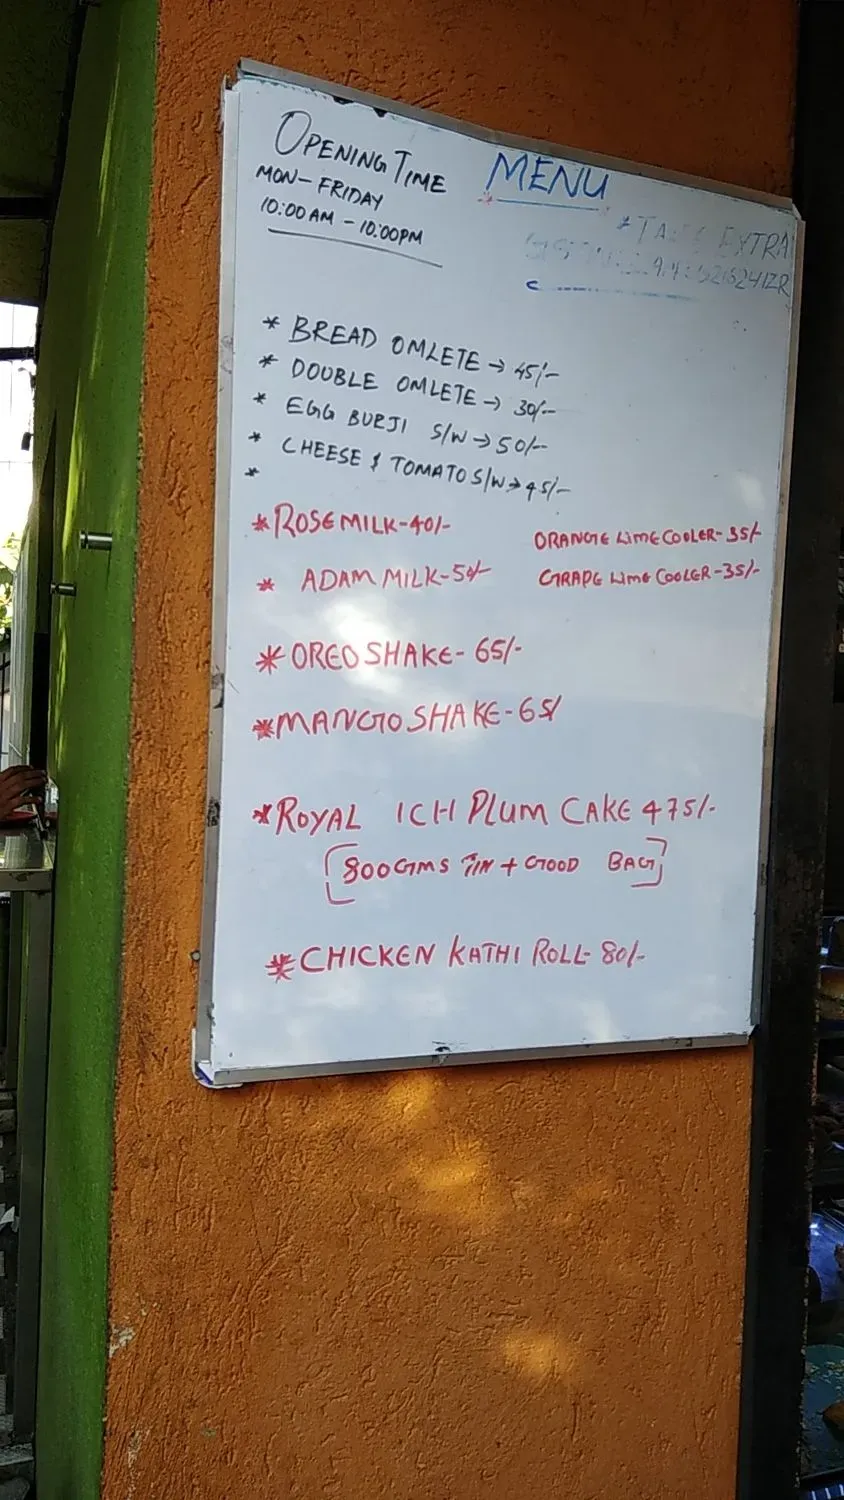 OPENING TIME
MON-FRIDAY
10:00AM - 10:00PM
MENU
* EXTRA
* BREAD OMLETE → 45/-
* DOUBLE OMLETE → 30/-
* EGG BURJI S/W → 50/-
* CHEESE & TOMATO S/W → 45/-
*
* ROSE MILK-40/-
ORANGE LIME COOLER-35/-
* ADAM MILK-50/-
GRAPE LIME COOLER-35/-
* OREO SHAKE- 65/-
* MANGO SHAKE-65/
* ROYAL ICH PLUM CAKE 475/-
[800GMS TIN + GOOD BAG]
* CHICKEN KATHI ROLL- 80/-